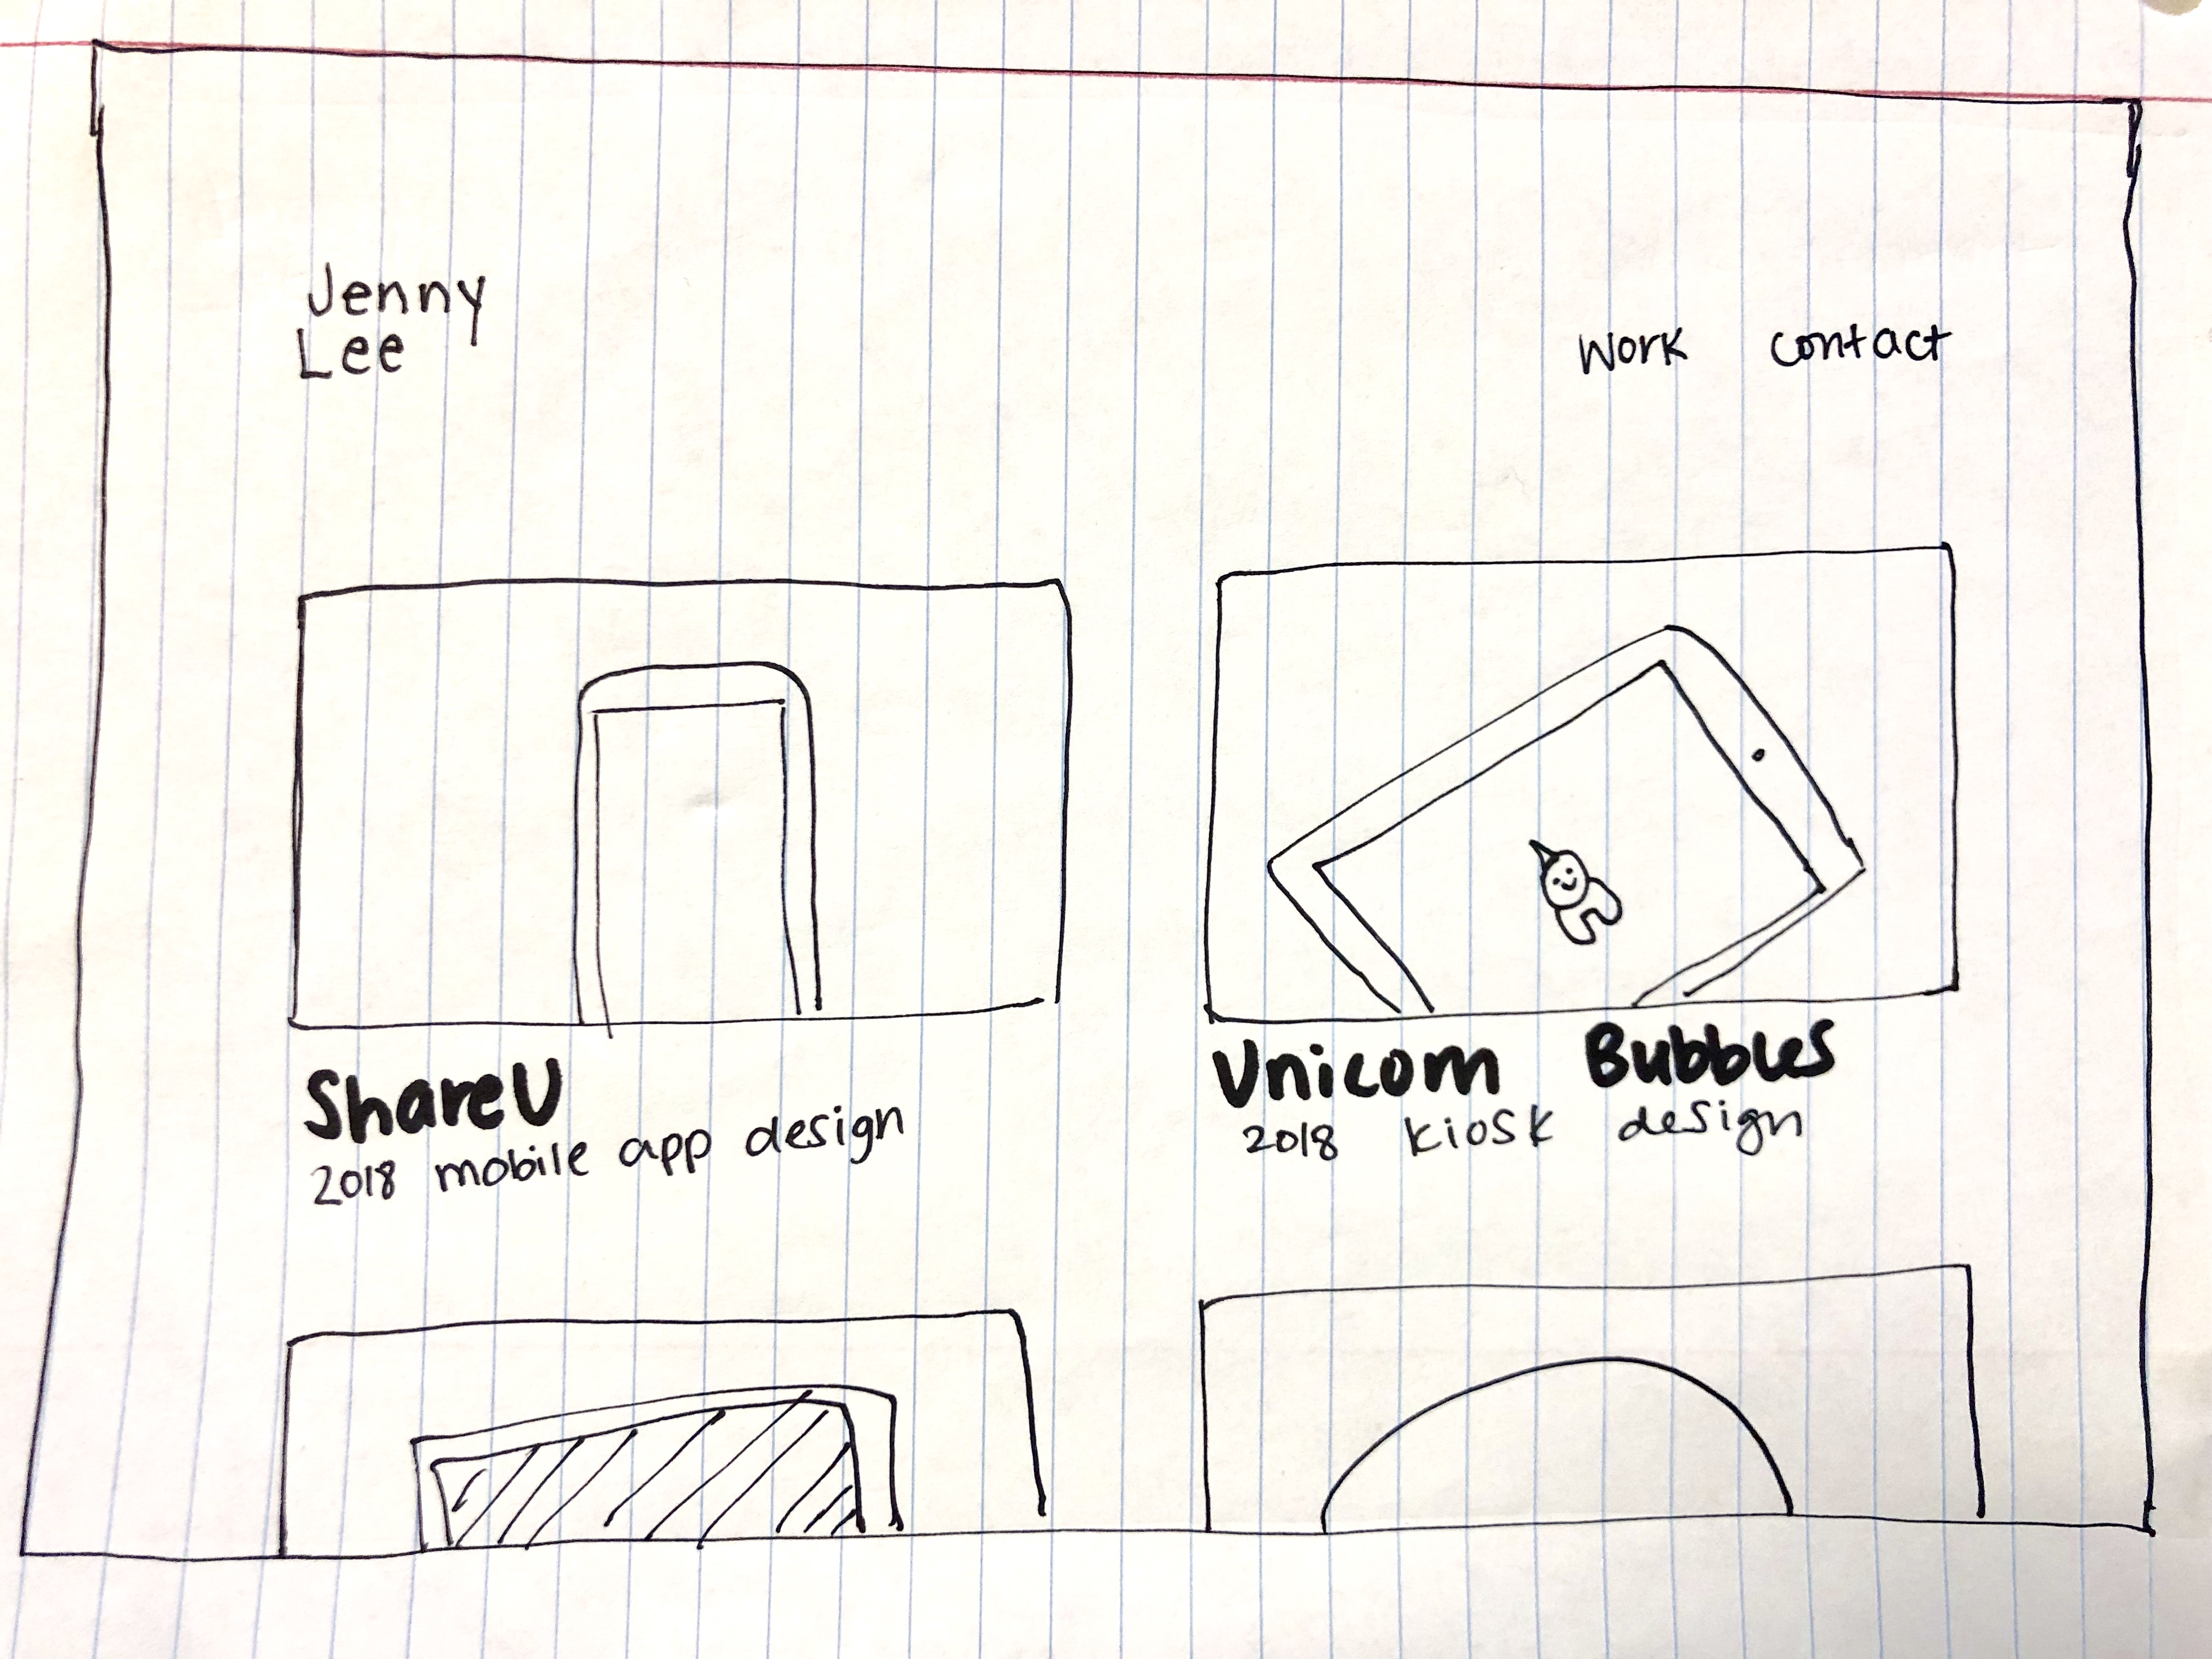 Jenny
Lee
Work contact
ShareU
2018 mobile app design
Unicorn Bubbles
2018 kiosk design